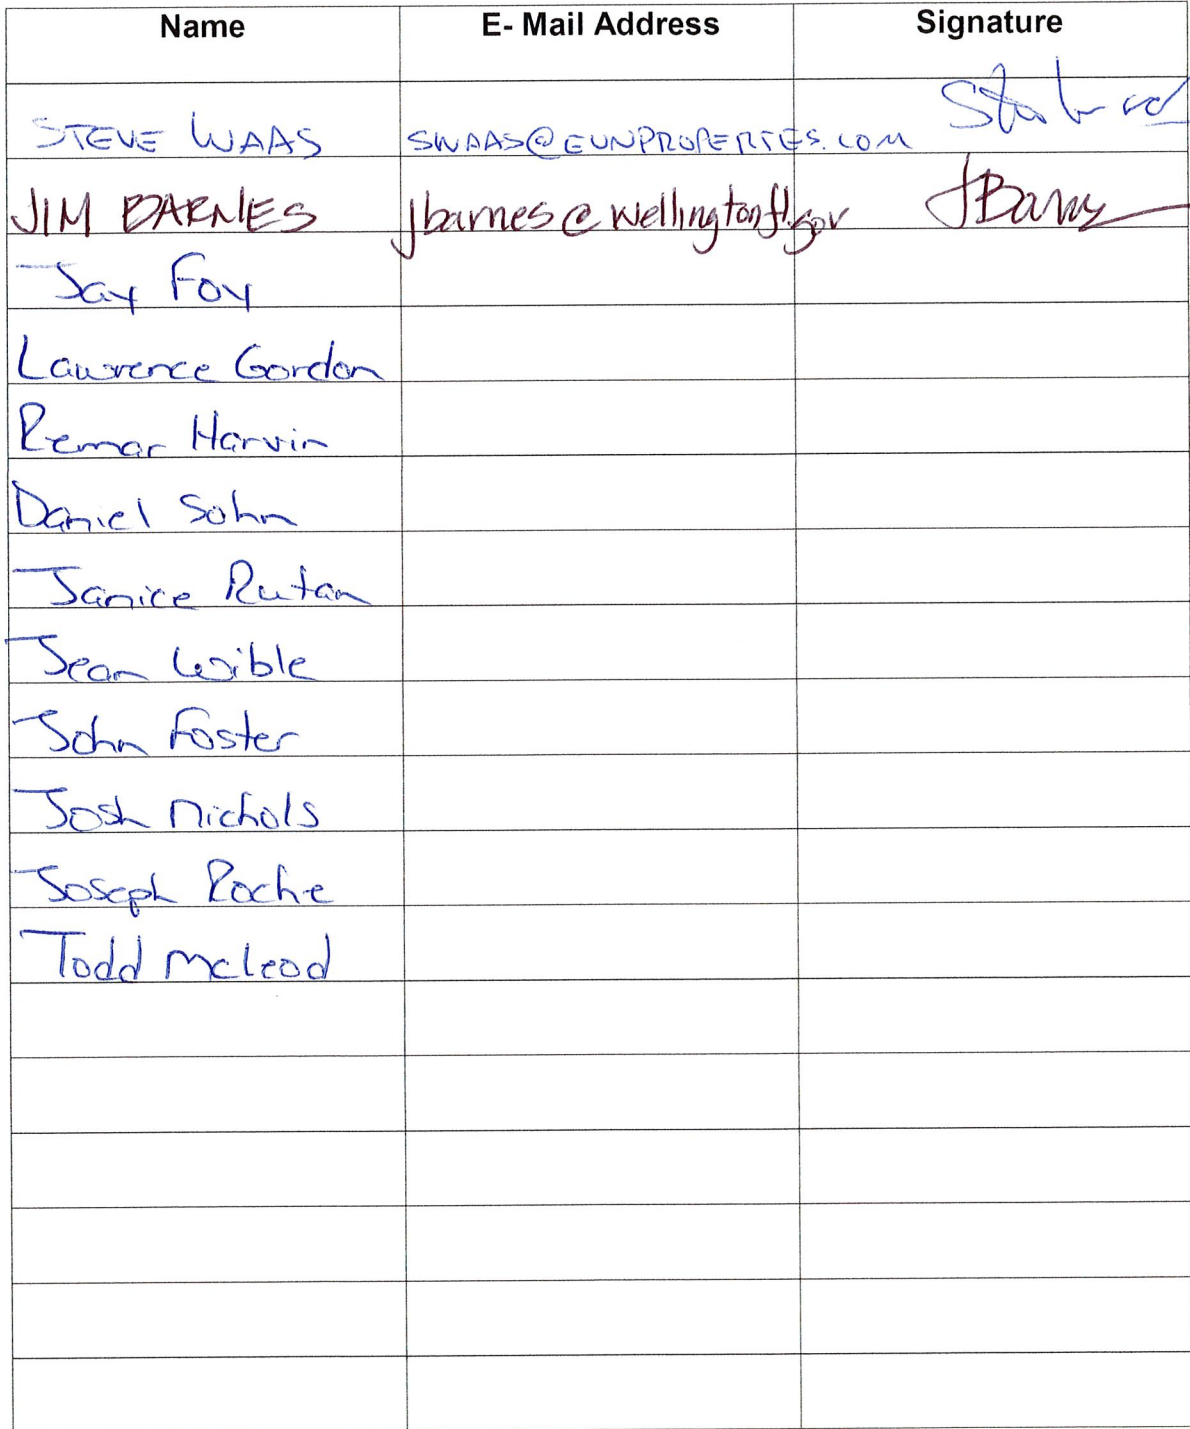 Name E- Mail Address Signature
STEVE WAAS SWAAS@EUNPROPERTIES.COM
JIM BARNES jbarnes@wellingtonfl.gov JBarnes
Jay Foy
Lawrence Gordon
Remar Harvin
Daniel Sohn
Janice Rutan
Jean Wible
John Foster
Josh Nichols
Joseph Roche
Todd McLeod